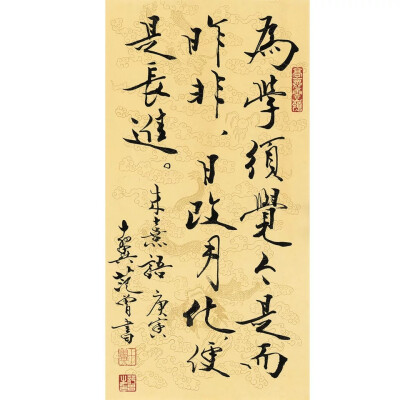 為學須覺今是而
昨非，日改月化，便
是長進。
朱熹語 庚寅
十翼范曾書